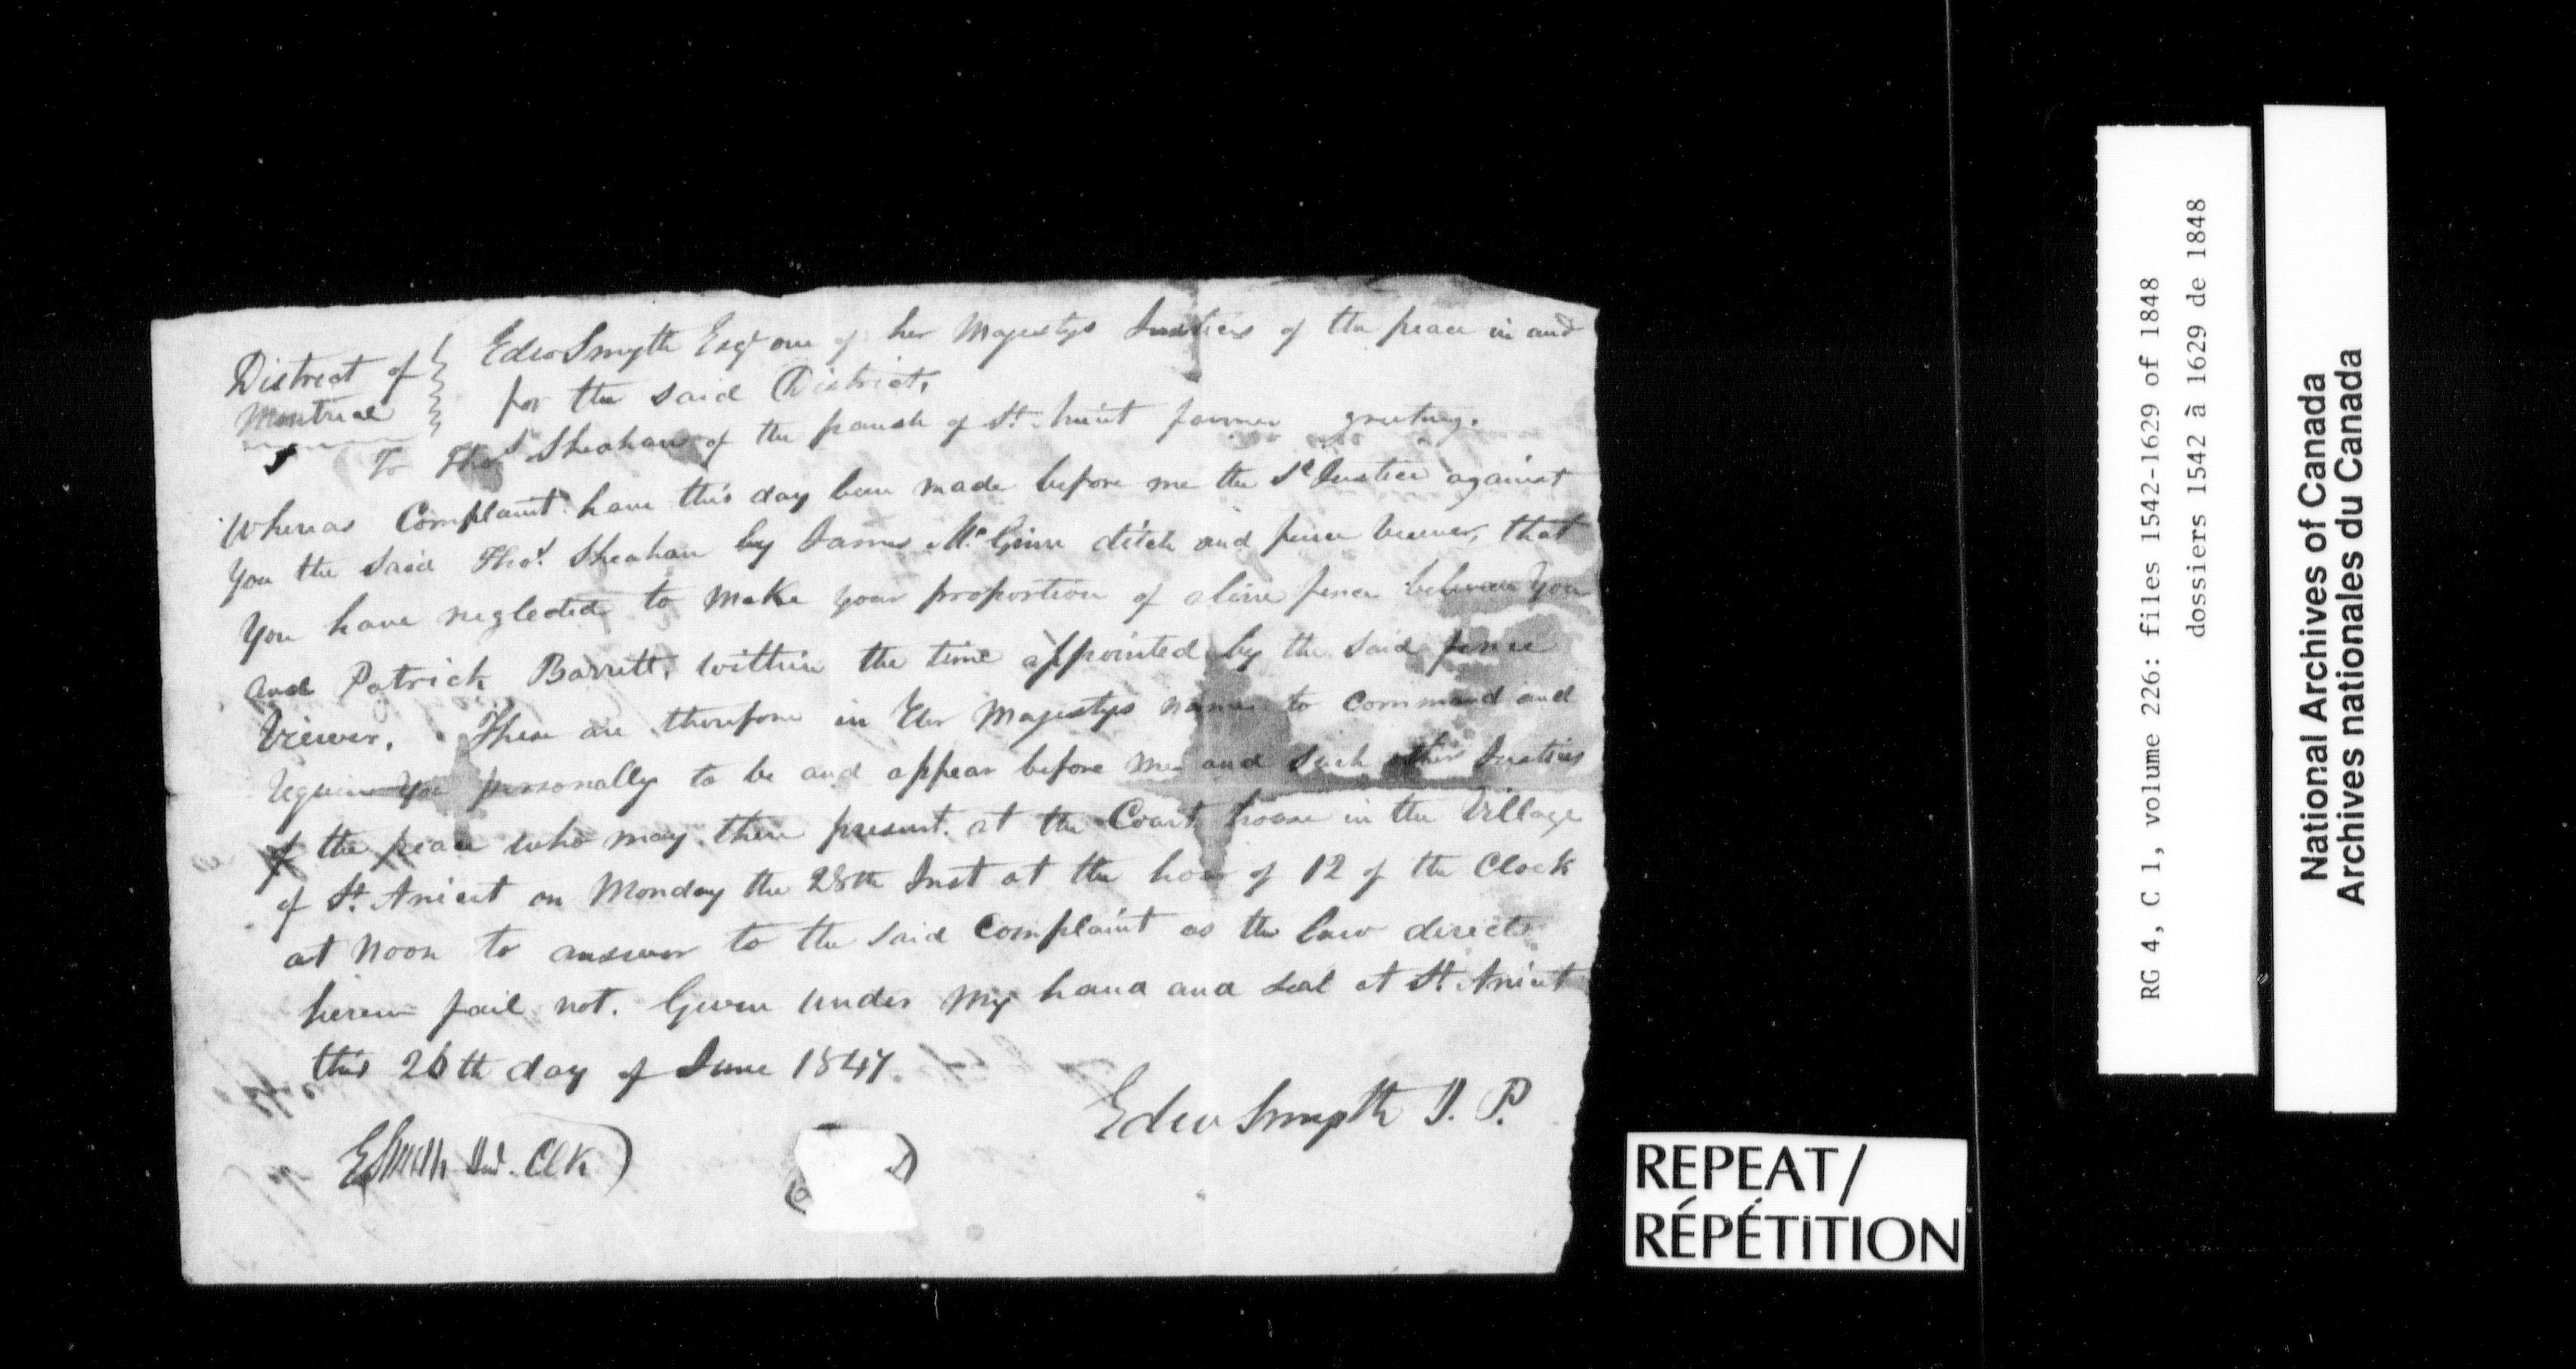 District of
Montreal
Edw Smyth Esqr one of her Majestys Justices of the peace in and
for the said District,
To Thos Sheahan of the parish of St. Anicet farmer greeting.
Whereas Complaint have this day been made before me the Sd Justice against
You the Said Thos. Sheahan by James Mc Ginn ditch and fence viewer, that
You have neglected to make your proportion of a line fence between You
and Patrick Barrett, within the time appointed by the said fence
Viewer. These are therefore in Her Majestys name to command and
require You personally to be and appear before me and such other Justices
of the peace who may then present at the Court house in the Village
of St. Anicet on Monday the 28th Inst at the hour of 12 of the Clock
at Noon to answer to the said Complaint as the law directs
herein fail not. Given under my hand and seal at St. Anicet
this 26th day of June 1847.
Edw Smyth J. P.
Clk
REPEAT/
RÉPÉTITION
RG 4, C 1, volume 226: files 1542-1629 of 1848
dossiers 1542 à 1629 de 1848
National Archives of Canada
Archives nationales du Canada